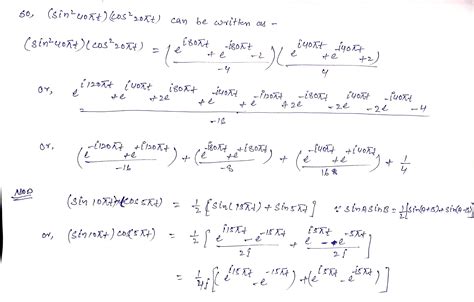 So, (sin²40πt)(cos²20πt) can be written as -
(sin²40πt)(cos²20πt) = ((e^{i80πt} + e^{-i80πt} - 2)/-4)((e^{i40πt} + e^{-i40πt} + 2)/4)
or, (e^{i120πt} + e^{i40πt} + 2e^{i80πt} + e^{-i40πt} + e^{-i120πt} + 2e^{-i80πt} - 2e^{i40πt} - 2e^{-i40πt} - 4)/-16
or, ((e^{-i120πt} + e^{+i120πt})/-16) + ((e^{-i80πt} + e^{+i80πt})/-8) + ((e^{-i40πt} + e^{+i40πt})/16) + 1/4
Now (sin 10πt)(cos 5πt) = 1/2 [sin(15πt) + sin 5πt] ∵ sinA sinB = 1/2[sin(A+B) + sin(A-B)]
or, (sin 10πt)(cos 5πt) = 1/2 [(e^{i15πt} - e^{-i15πt})/2j + (e^{i5πt} - e^{-i5πt})/2j]
= 1/4j [(e^{i15πt} - e^{-i15πt}) + (e^{i5πt} - e^{-i5πt})]